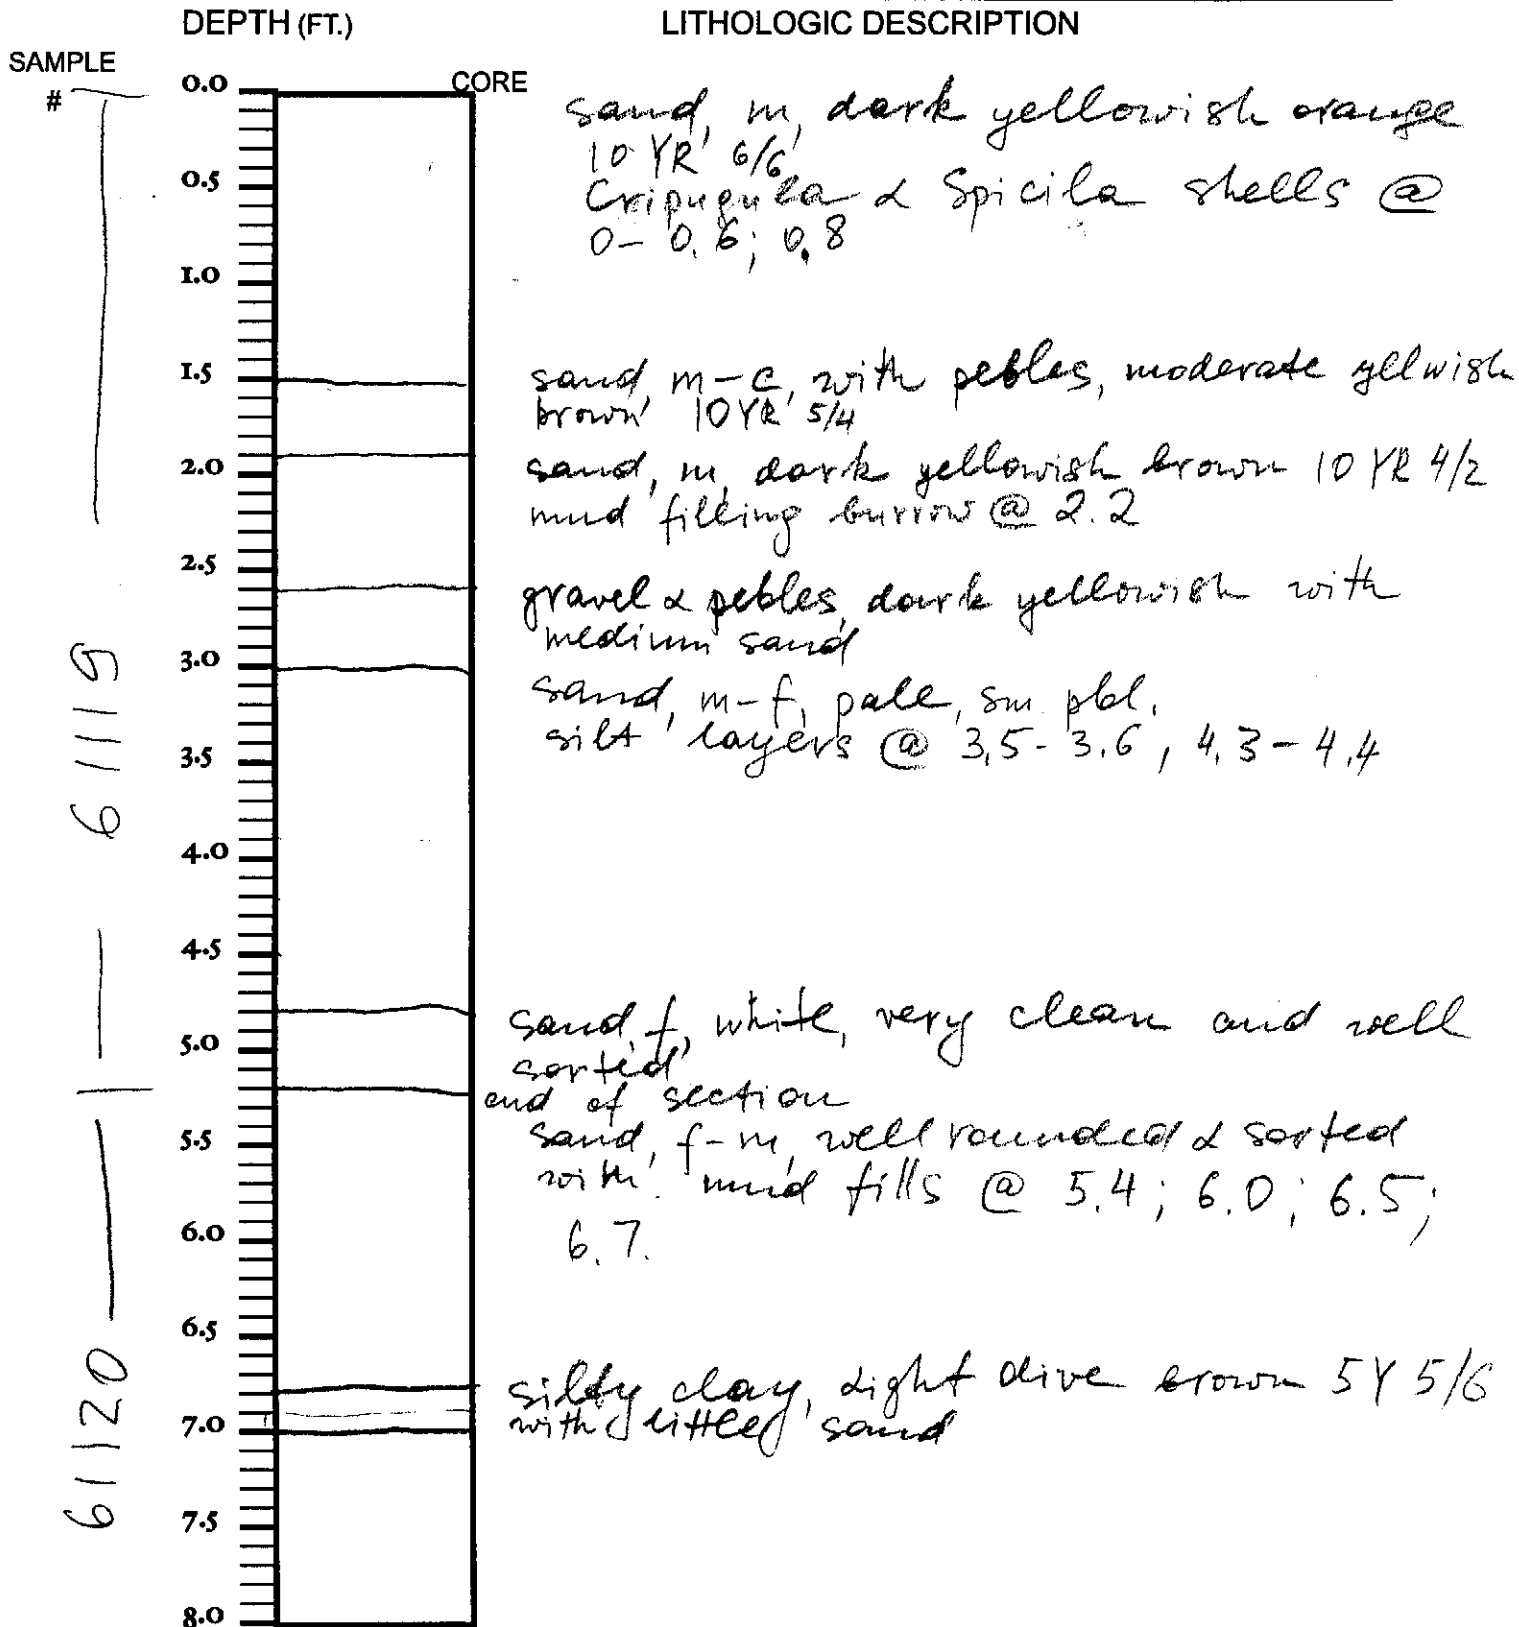 DEPTH (FT.) LITHOLOGIC DESCRIPTION
SAMPLE
#
CORE
0.0
sand, m, dark yellowish orange
10 YR 6/6
0.5
Cripugula & Spicila shells @
0-0.6; 0.8
1.0
1.5
sand, m-c, with pebles, moderate yllwish
brown 10YR 5/4
2.0
sand, m, dark yellowish brown 10 YR 4/2
mud filling burrow @ 2.2
2.5
gravel & pebles, dark yellowish with
medium sand
3.0
sand, m-f, pale, sm pbl.
silt layers @ 3.5-3.6, 4.3-4.4
3.5
61119
4.0
4.5
sand, f, white, very clean and well
sorted
5.0
end of section
sand, f-m, well rounded & sorted
5.5
with mud fills @ 5.4; 6.0; 6.5;
6.7.
6.0
6.5
silty clay, light olive brown 5Y 5/6
with little sand
7.0
61120
7.5
8.0